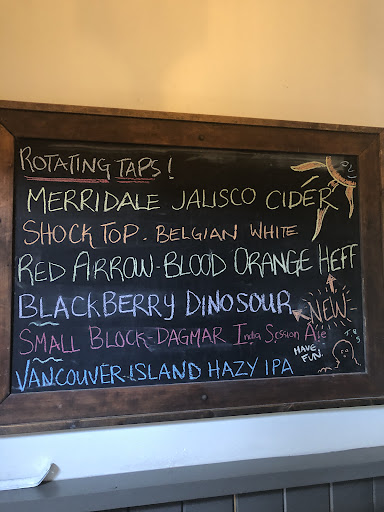 ROTATING TAPS!
MERRIDALE JALISCO CIDER
SHOCK TOP - BELGIAN WHITE
RED ARROW - BLOOD ORANGE HEFF
BLACKBERRY DINOSOUR
NEW
SMALL BLOCK-DAGMAR India Session Ale
HAVE FUN.
VANCOUVER-ISLAND HAZY IPA